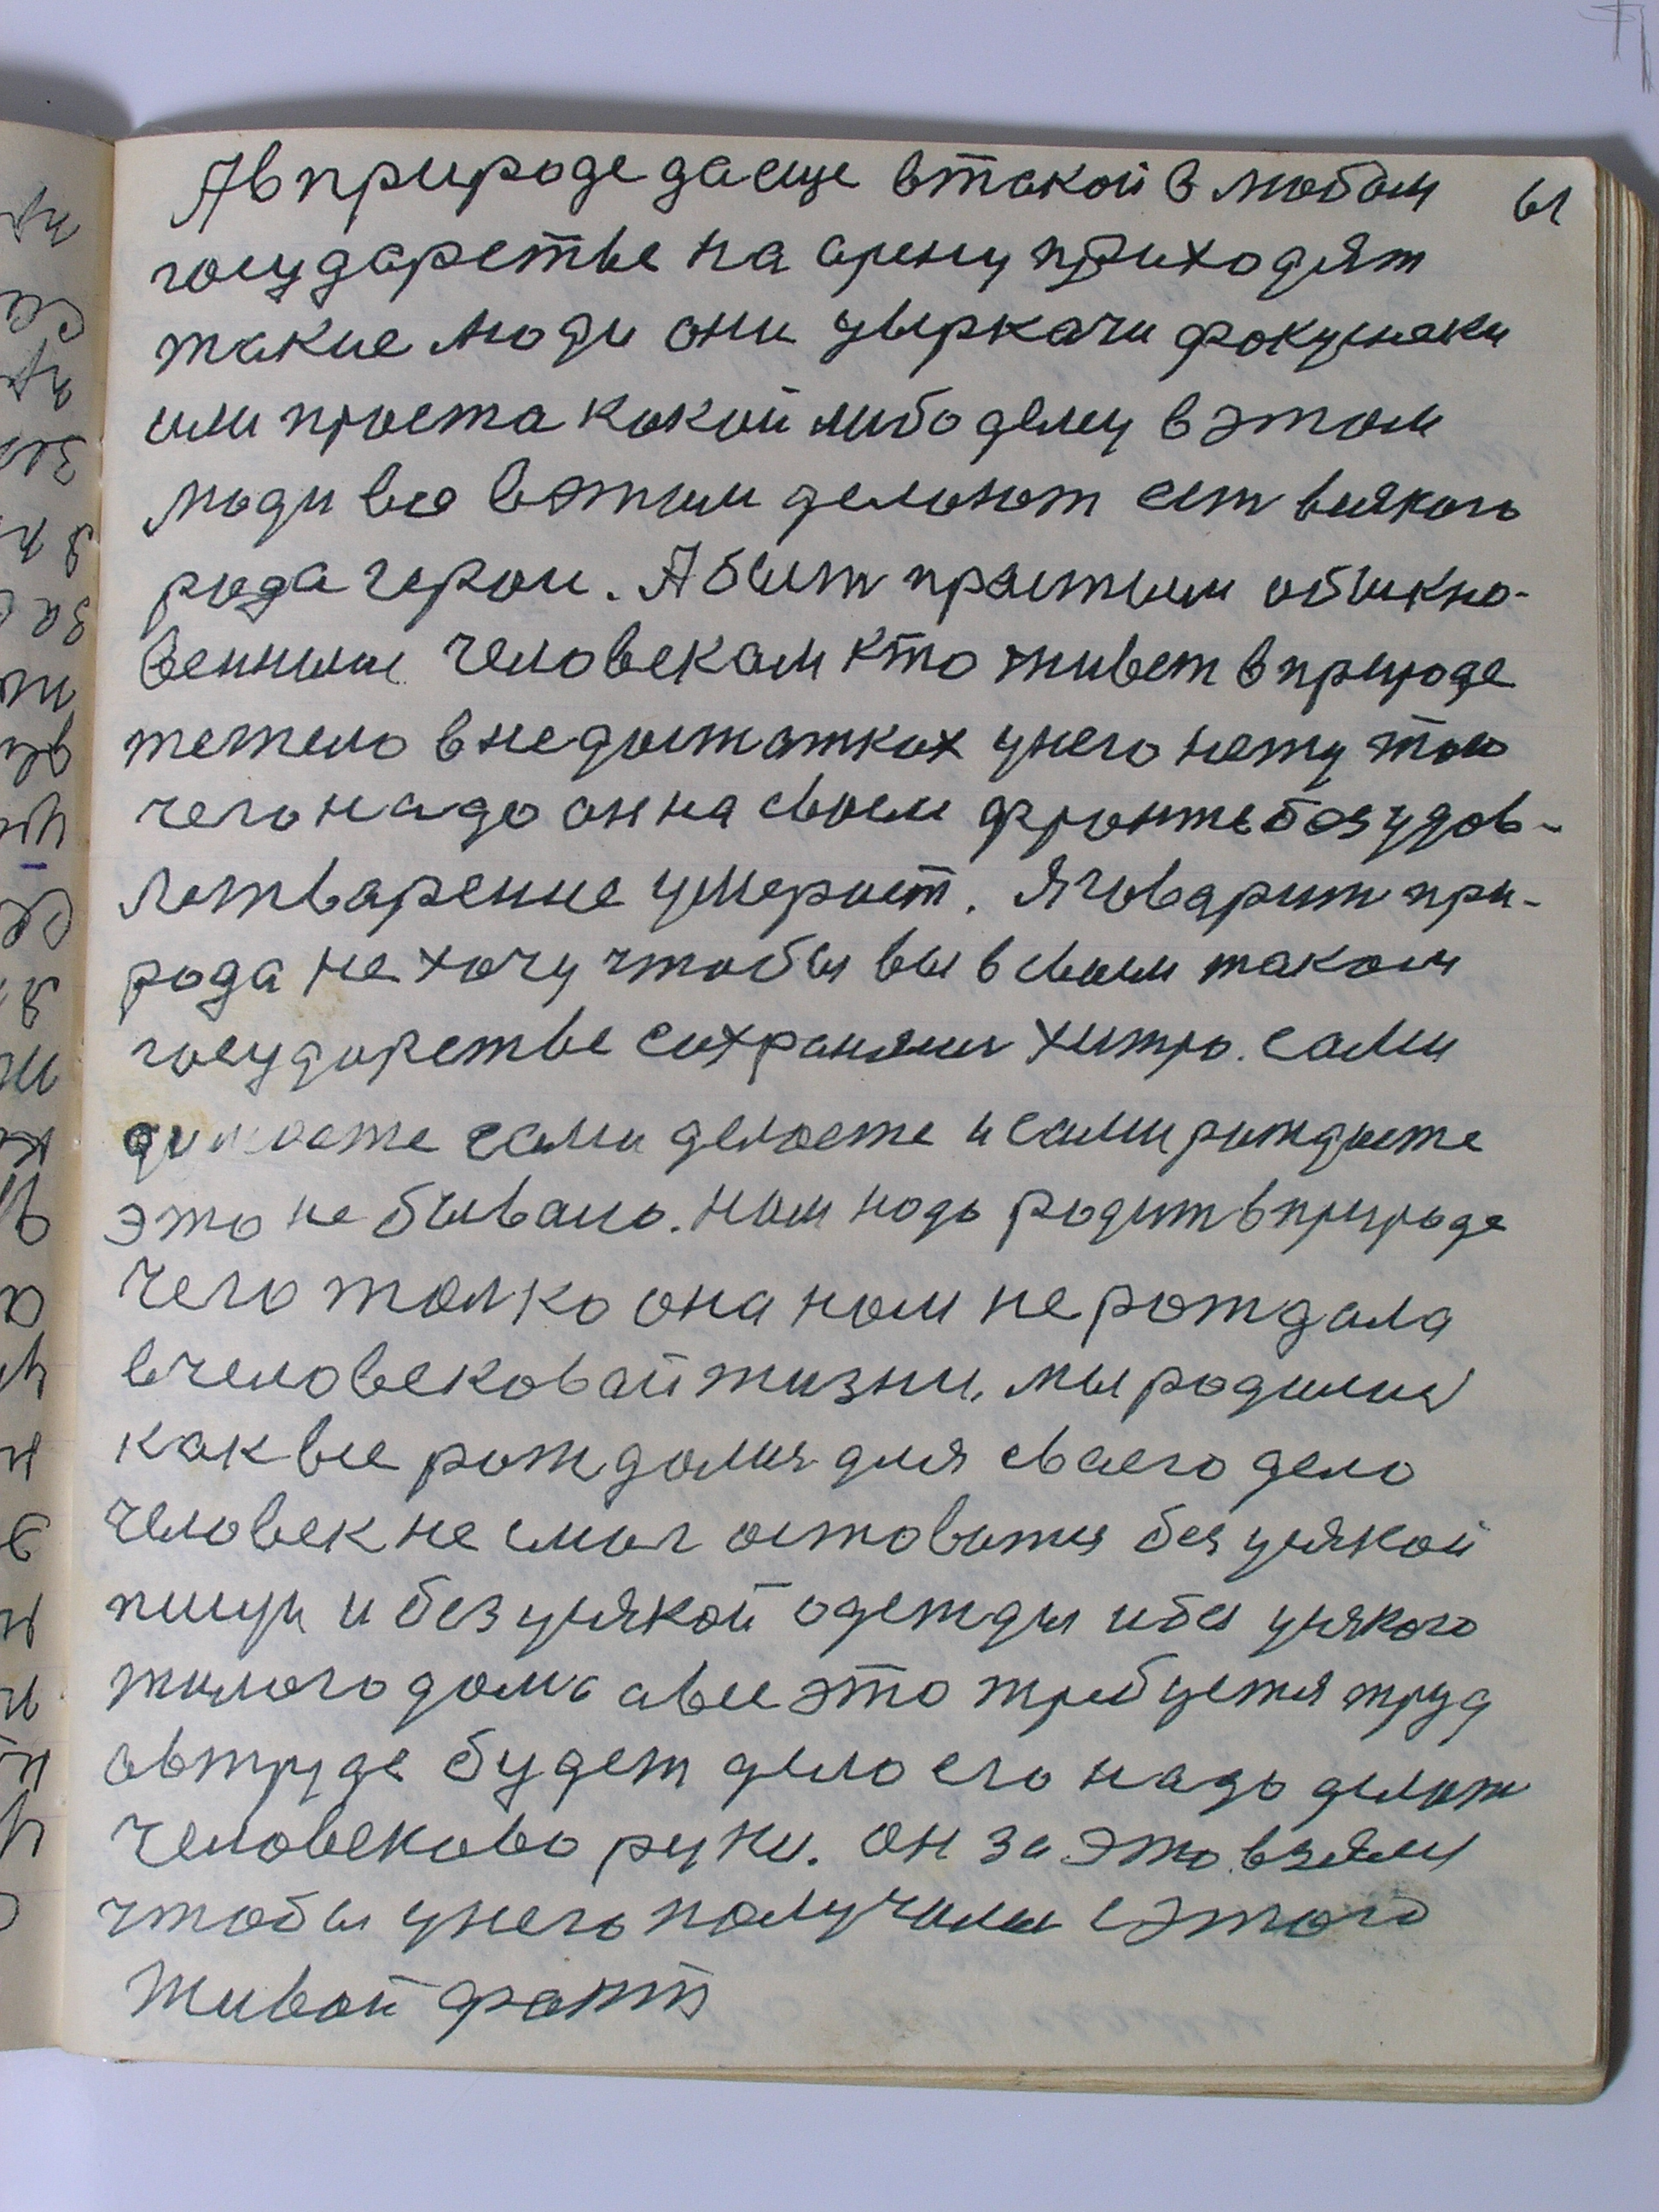 А в природе да еще в такой в любом 61
государстве на арену приходят
такие люди они цыркачи фокусняки
или проста какой либо делец в этом
люди все в этим делают ест всякого
рода герои. А быт простым обыкно-
венным человекам кто живет в природе
тежело в недостатках у него нету того
чего надо он на своем фронте без удов-
летварение умерает. Я говарит при-
рода не хочу чтобы вы в своем таком
государстве сохраняли хитро. сами
думаете сами делаете и сами рождаете
это не бывало. Нам надо родит в природе
чего толко она нам не рождала
в человековай жизни. мы родились
как все рождались для сваего дело
человек не смог оставатся без усякой
пищи и без усякой одежды и без усякого
жилого дома а все это требуется труд
а в труде будет дело его надо делат
человеково руки. он за это взялся
чтобы у него получились с этого
живой факт